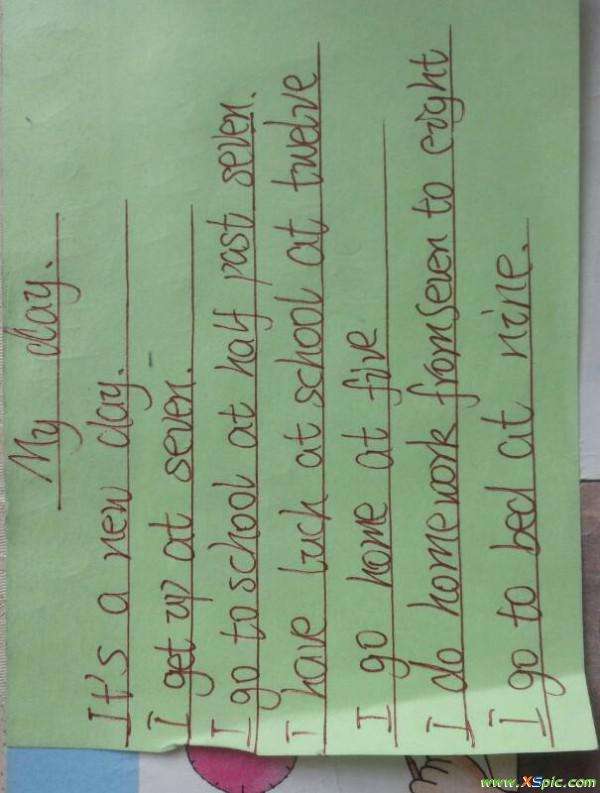 My day.
It's a new day.
I get up at seven.
I go to school at half past seven.
I have luch at school at twelve
I go home at five
I do homework from seven to eight
I go to bed at nine.
www.XSpic.com